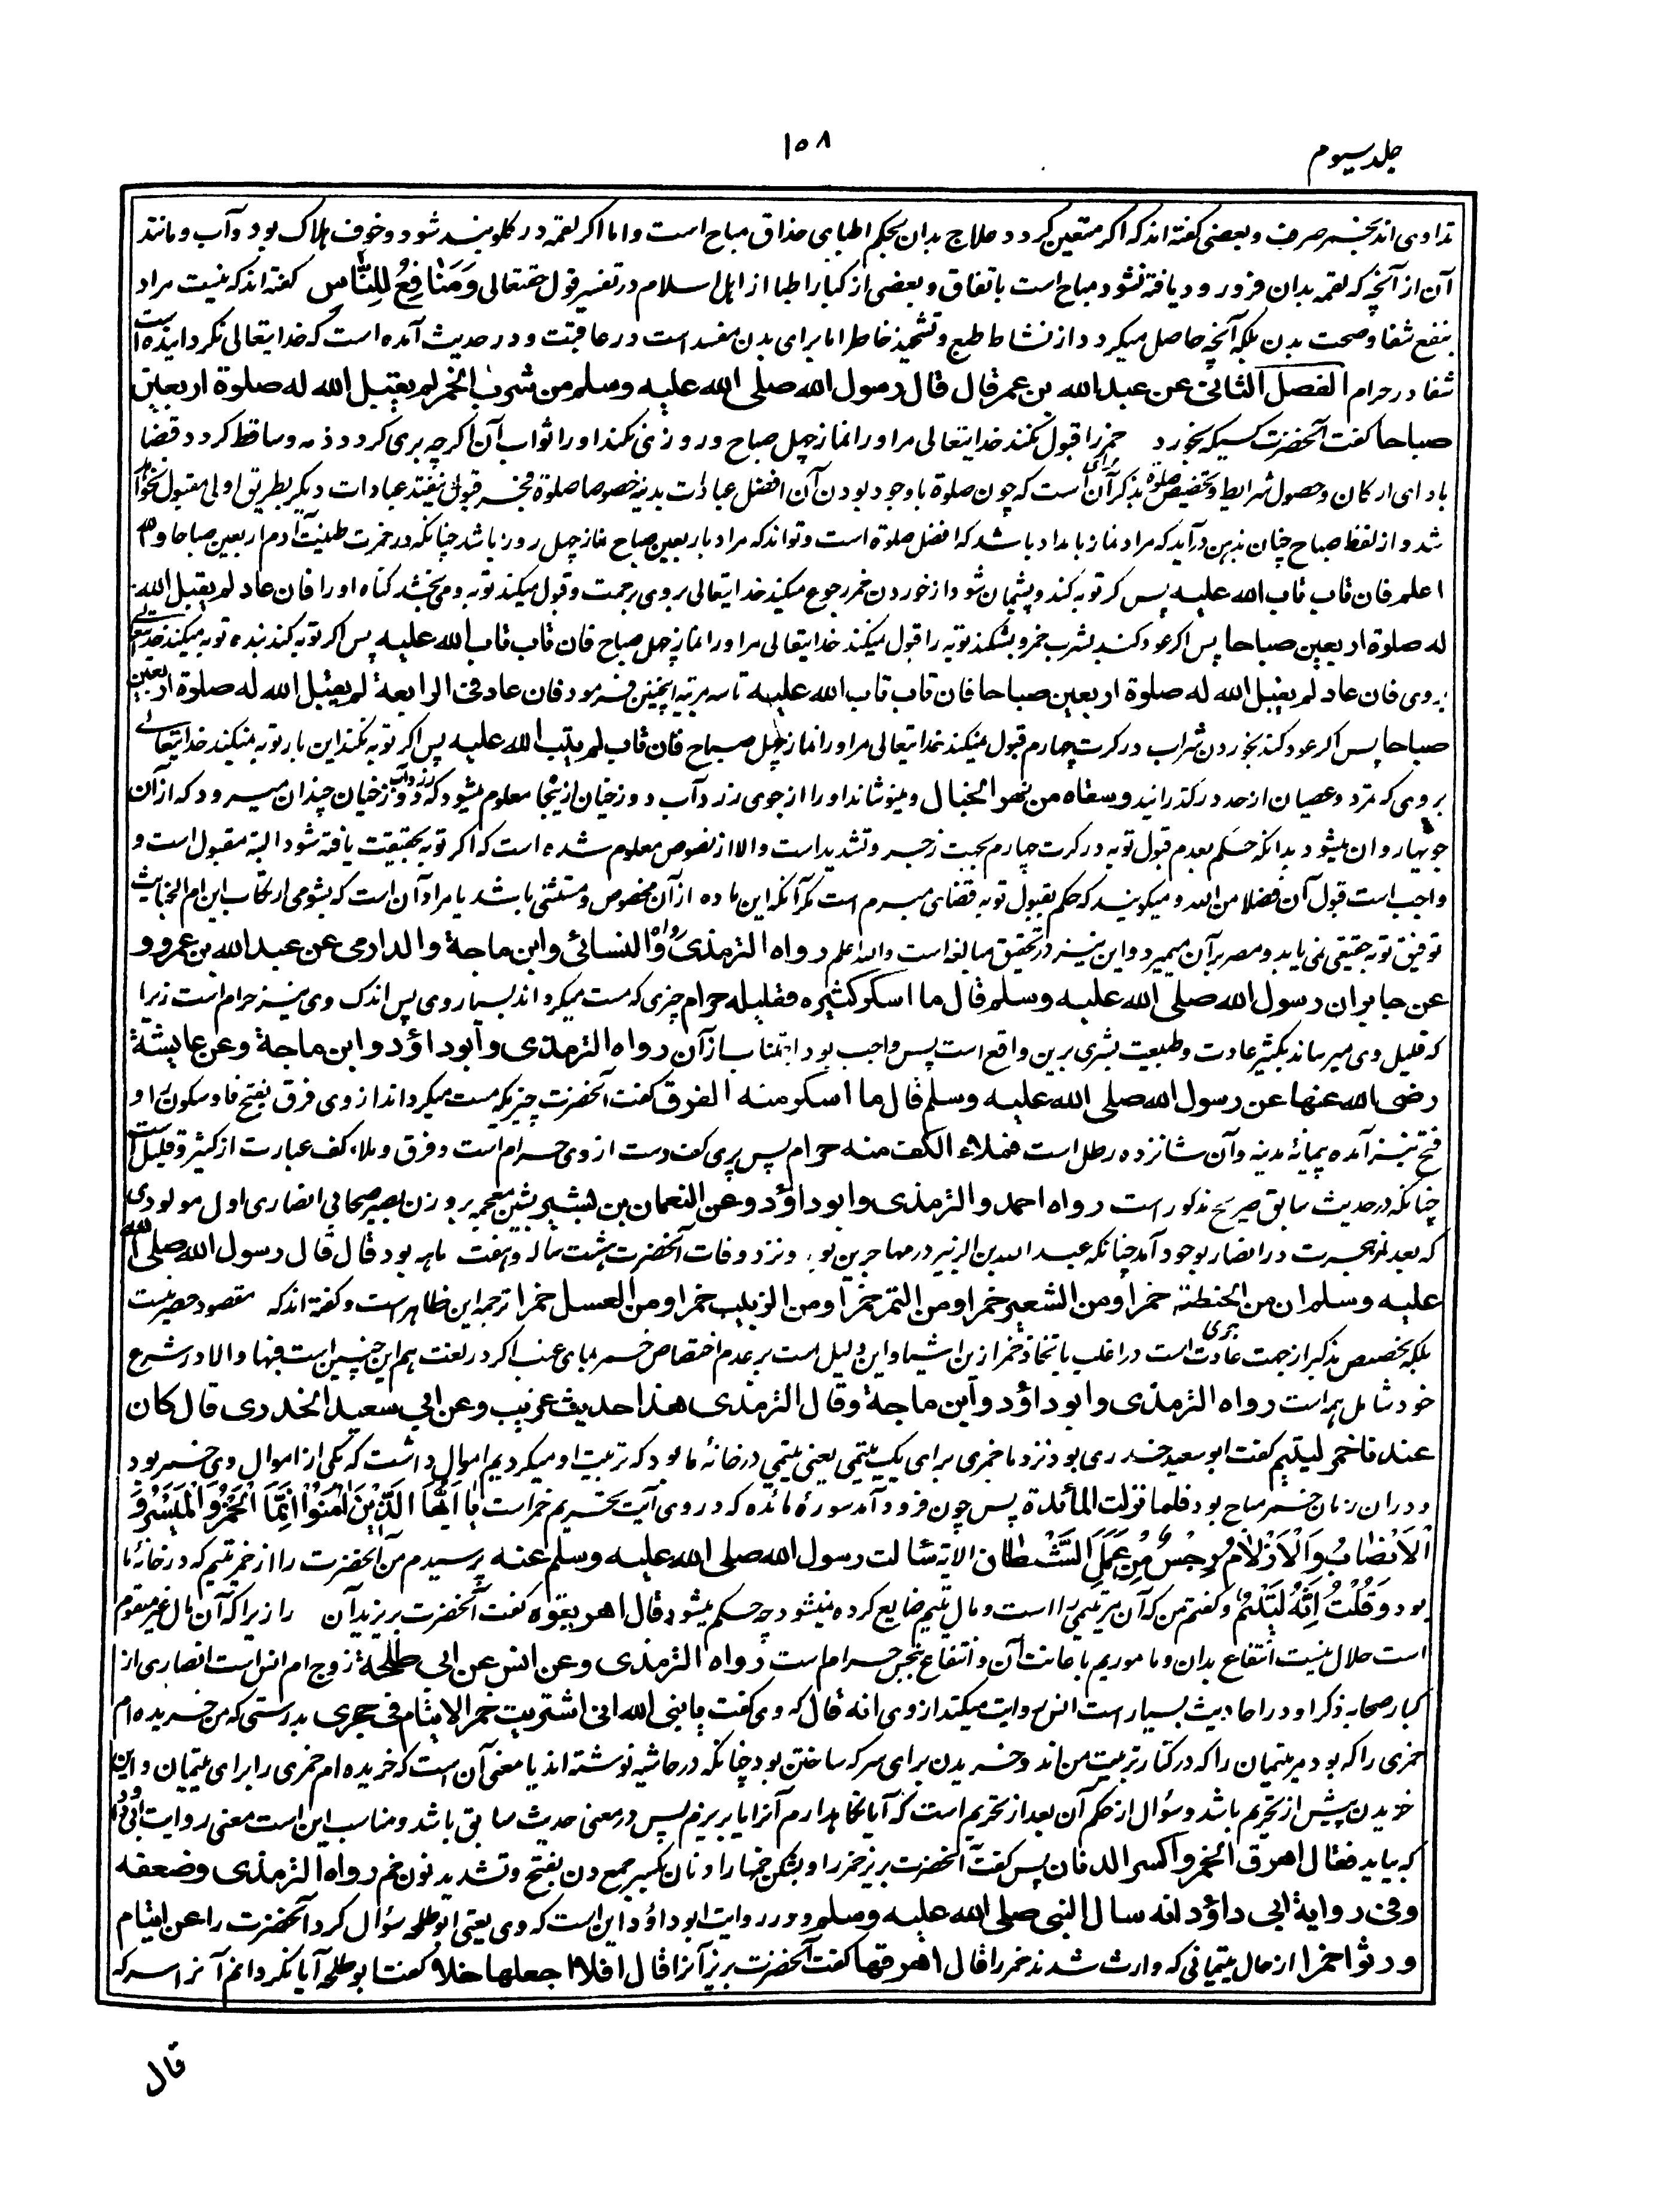 جلد سیوم
۱۵۸
تداوی اند بخمر صرف و بعضی گفته اند که اگر متعین گردد علاج بدان بحکم اطبای حذاق مباح است و اما اگر لقمه در گلو بند شود و خوف هلاک بود و آب و مانند
آن از آنچه که لقمه بدان فرو رود یافته نشود مباح است باتفاق و بعضی از کبار اطبا از اهل اسلام در تفسیر قول حقتعالی وَمَنَافِعُ لِلنَّاسِ گفته اند که نیست مراد
بنفع شفا و صحت بدن بلکه آنچه حاصل میگردد از نشاط طبع و تشحیذ خاطر اما برای بدن مفسد است در عاقبت و در حدیث آمده است که خدایتعالی نگردانیده است
شفا در حرام الفصل الثانی عن عبد الله بن عمر قال قال رسول الله صلی الله علیه وسلم من شرب الخمر لم یقبل الله له صلوة اربعین
صباحا گفت آنحضرت کسیکه بخورد خمر را قبول نکند خدایتعالی مر او را نماز چهل صباح و روزی نکند او را ثواب آن اگرچه بری گردد ذمه و ساقط گردد قضا
بادای ارکان و حصول شرایط و تخصیص صلوة بذکر برای آن است که چون صلوة با وجود بودن آن افضل عبادات بدنیه خصوصا صلوة فجر قبول نیفتد عبادات دیگر بطریق اولی مقبول نخواهد
شد و از لفظ صباح چنان بذهن درآید که مراد نماز بامداد باشد که افضل صلوة است و تواند که مراد باربعین صباح نماز چهل روز باشد چنانکه در خمرت طینت آدم اربعین صباحا والله
اعلم فان تاب تاب الله علیه پس گر توبه کند و پشیمان شود از خوردن خمر رجوع میکند خدایتعالی بروی برحمت و قبول میکند توبه و می بخشد گناه او را فان عاد لم یقبل الله
له صلوة اربعین صباحا پس اگر عود کند بشرب خمر و بشکند توبه را قبول نمیکند خدایتعالی مر او را نماز چهل صباح فان تاب تاب الله علیه پس اگر توبه کند بنده توبه میکند خدایتعالی
بروی فان عاد لم یقبل الله له صلوة اربعین صباحا فان تاب تاب الله علیه تا سه مرتبه اینچنین فرمود فان عاد فی الرابعة لم یقبل الله له صلوة اربعین
صباحا پس اگر عود کند بخوردن شراب در کرت چهارم قبول نمیکند خدایتعالی مر او را نماز چهل صباح فان تاب لم یتب الله علیه پس اگر توبه کند این بار توبه نمیکند خدایتعالی
بروی که تمرد و عصیان از حد در گذرانید وسقاه من نهر الخبال و مینوشاند او را از جوی زرد آب دوزخیان ازینجا معلوم میشود که زرد آب دوزخیان چندان میرود که از آن
جویها روان میشود بدانکه حکم بعدم قبول توبه در کرت چهارم بجهت زجر و تشدید است والا از نصوص معلوم شده است که اگر توبه بحقیقت یافته شود البته مقبول است و
واجب است قبول آن فضلا من الله و میگویند که حکم بقبول توبه قضای مبرم است مگر آنکه این ماده از آن مخصوص و مستثنی باشد یا مراد آن است که بشومی ارتکاب این ام الخبایث
توفیق توبه حقیقی نمی یابد و مصر بر آن میمیرد و این نیز در تحقیق مبالغه است والله اعلم رواه الترمذی ورواه النسائی وابن ماجة والدارمی عن عبد الله بن عمرو و
عن جابر ان رسول الله صلی الله علیه وسلم قال ما اسکر کثیره فقلیله حرام چیزی که مست میگرداند بسیار وی پس اندک وی نیز حرام است زیرا
که قلیل وی میرساند بکثیر عادت و طبیعت بشری برین واقع است پس واجب بود اجتناب از آن رواه الترمذی وابو داؤد وابن ماجة وعن عایشة
رضی الله عنها عن رسول الله صلی الله علیه وسلم قال ما اسکر منه الفرق گفت آنحضرت چیزیکه مست میگرداند از وی فرق بفتح فا و سکون را و
فتح نیز آمده پیمانۀ مدینه و آن شانزده رطل است فملاء الکف منه حرام پس پری کف دست از وی حرام است و فرق و ملاء کف عبارت از کثیر و قلیل است
چنانکه در حدیث سابق صریح مذکور است رواه احمد والترمذی وابو داؤد وعن النعمان بن بشیر بشین معجمه بروزن بصیر صحابی انصاری اول مولودی
که بعد از هجرت در انصار بوجود آمد چنانکه عبد الله بن الزبیر در مهاجرین بود و نزد وفات آنحضرت هشت ساله و هفت ماهه بود قال قال رسول الله صلی الله
علیه وسلم ان من الحنطة خمرا ومن الشعیر خمرا ومن التمر خمرا ومن الزبیب خمرا ومن العسل خمرا ترجمه این ظاهر است و گفته اند که مقصود حصر نیست
بلکه تخصیص بذکر از جهت عادت است در اغلب باتخاذ خمر ازین اشیا و این دلیل است بر عدم اختصاص خمر بمای عنب اگر در لغت هم این چنین است فبها والا در شرع
خود شامل همه است رواه الترمذی وابو داؤد وابن ماجة وقال الترمذی هذا حدیث غریب وعن ابی سعید الخدری قال کان
عندنا خمر لیتیم گفت ابو سعید خدری بود نزد ما خمری برای یک یتیمی یعنی یتیمی در خانۀ ما بود که تربیت او میکردیم اموال داشت که یکی از اموال وی خمر بود
و در ان زمان خمر مباح بود فلما نزلت المائدة پس چون فرود آمد سورۀ مائده که در وی آیت تحریم خمر است یٰاَیُّهَا الَّذِیْنَ اٰمَنُوْا اِنَّمَا الْخَمْرُ وَالْمَیْسِرُ وَ
الْاَنْصَابُ وَالْاَزْلَامُ رِجْسٌ مِّنْ عَمَلِ الشَّیْطَانِ الآیة سالت رسول الله صلی الله علیه وسلم عنه پرسیدم من آنحضرت را از خمر یتیم که در خانۀ ما
بود وَقُلْتُ اِنَّهُ لِیَتِیْمٍ و گفتم من که آن مر یتیمی را است و مال یتیم ضایع کرده نمیشود چه حکم میشود قال اهریقوه گفت آنحضرت بریزید آن را زیرا که آن مال غیر متقوم
است حلال نیست انتفاع بدان و ما موریم باهانت آن و انتفاع بنجس حرام است رواه الترمذی وعن انس عن ابی طلحة زوج ام انس است انصاری از
کبار صحابه ذکر او در احادیث بسیار است انس روایت میکند از وی انه قال که وی گفت یا نبی الله انی اشتریت خمرا لایتام فی حجری بدرستی که من خریده ام
خمری را که بود مر یتیمان را که در کنار تربیت من اند و خریدن برای سرکه ساختن بود چنانکه در حاشیه نوشته اند یا معنی آن است که خریده ام خمری را برای یتیمان و این
خریدن پیش از تحریم باشد و سؤال از حکم آن بعد از تحریم است که آیا نگاهدارم آنرا یا بریزم پس در معنی حدیث سابق باشد و مناسب این است معنی روایت ابی داؤد
که بیاید فقال اهرق الخمر واکسر الدنان پس گفت آنحضرت بریز خمر را و بشکن خمها را و نان بکسر جمع دن بفتح و تشدید نون خم رواه الترمذی وضعفه
وفی روایة ابی داؤد انه سال النبی صلی الله علیه وسلم و در روایت ابو داؤد این است که وی یعنی ابو طلحه سؤال کرد آنحضرت را عن ایتام
ورثوا خمرا از حال یتیمانی که وارث شدند خمر را قال اهرقها گفت آنحضرت بریز آنرا قال افلا اجعلها خلا گفت ابو طلحه آیا نگردانم آنرا سرکه
قال